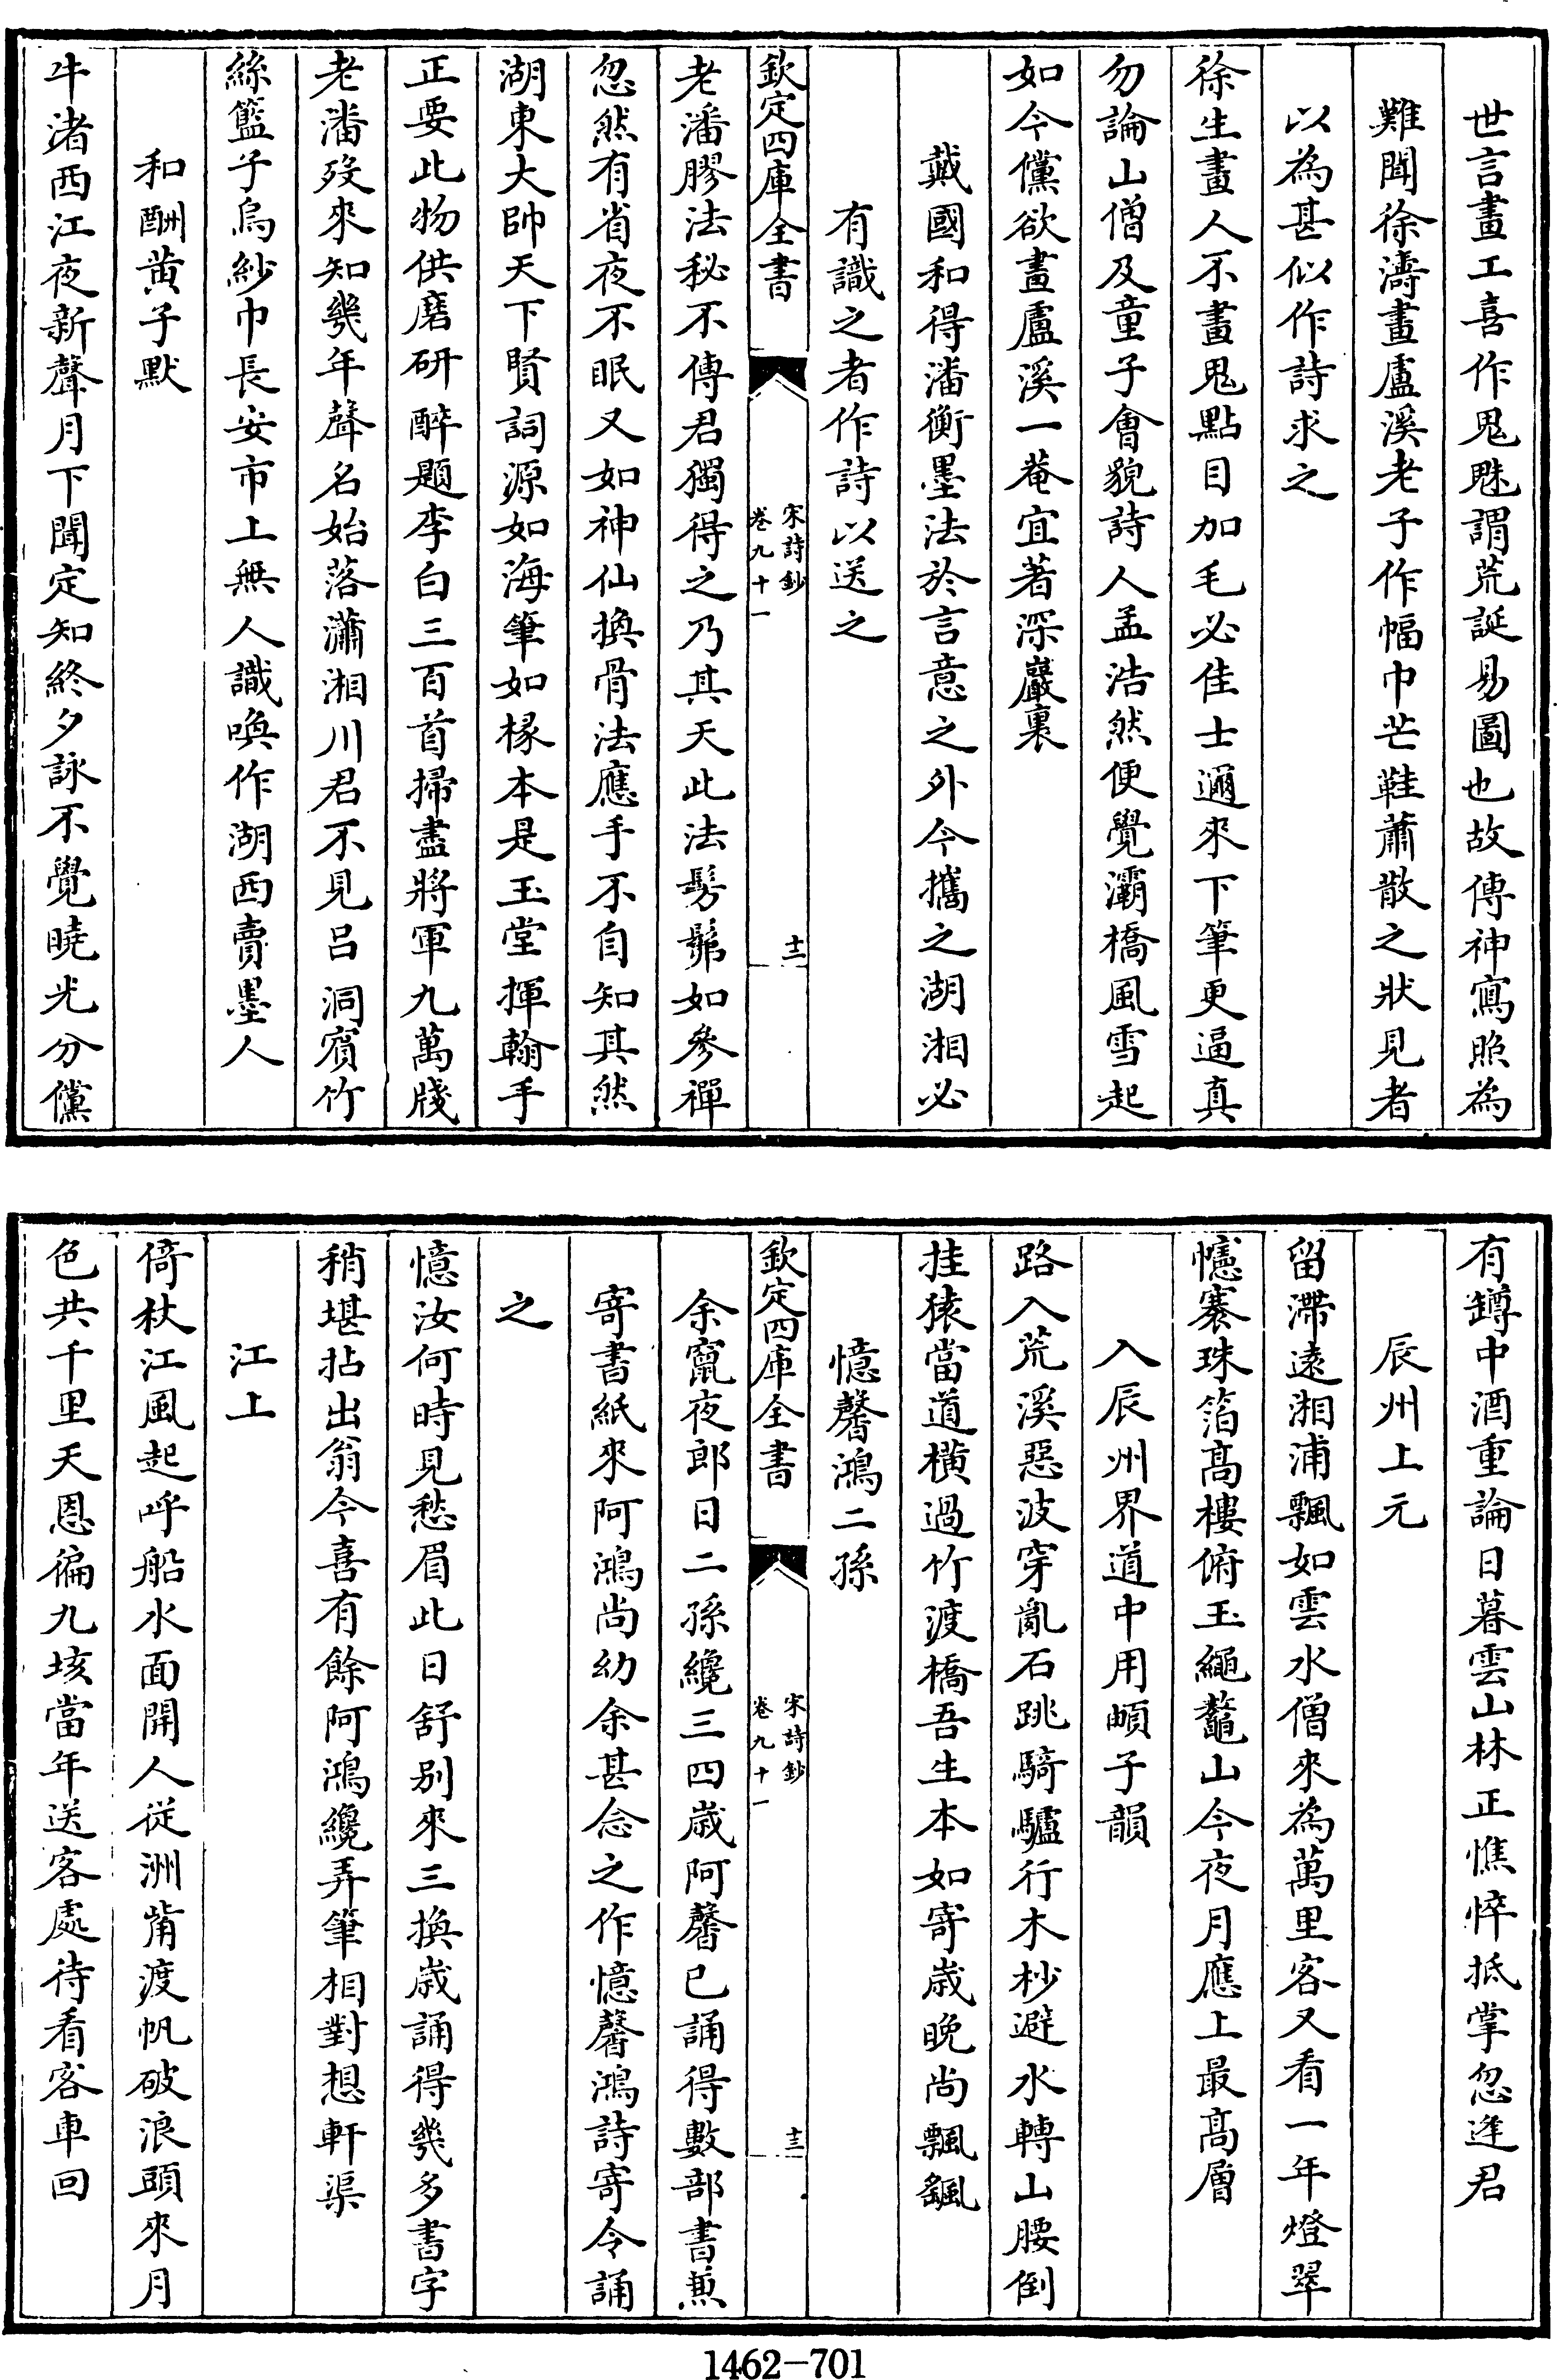 世言畫工喜作鬼魅謂荒誕易圖也故傳神寫照為
難聞徐濤畫盧溪老子作幅巾芒鞋蕭散之狀見者
以為甚似作詩求之
徐生畫人不畫鬼點目加毛必佳士邇來下筆更逼真
勿論山僧及童子會貌詩人孟浩然便覺灞橋風雪起
如今儻欲畫盧溪一菴宜著深巖裏
戴國和得潘衡墨法於言意之外今攜之湖湘必
有識之者作詩以送之
欽定四庫全書
宋詩鈔
卷九十一
十二
老潘膠法秘不傳君獨得之乃其天此法髣髴如參禪
忽然有省夜不眠又如神仙換骨法應手不自知其然
湖東大帥天下賢詞源如海筆如椽本是玉堂揮翰手
正要此物供磨研醉題李白三百首掃盡將軍九萬牋
老潘歿來知幾年聲名始落瀟湘川君不見呂洞賓竹
絲籃子烏紗巾長安市上無人識喚作湖西賣墨人
和酬黃子默
牛渚西江夜新聲月下聞定知終夕詠不覺曉光分儻
有罇中酒重論日暮雲山林正憔悴抵掌忽逢君
辰州上元
留滯遠湘浦飄如雲水僧來為萬里客又看一年燈翠
幰褰珠箔高樓俯玉繩鼇山今夜月應上最高層
入辰州界道中用㬰子韻
路入荒溪惡波穿亂石跳騎驢行木杪避水轉山腰倒
挂猿當道橫過竹渡橋吾生本如寄歲晚尚飄颻
憶馨鴻二孫
欽定四庫全書
宋詩鈔
卷九十一
十三
余竄夜郎日二孫纔三四歲阿馨已誦得數部書兼
寄書紙來阿鴻尚幼余甚念之作憶馨鴻詩寄令誦
之
憶汝何時見愁眉此日舒別來三換歲誦得幾多書字
稍堪拈出翁今喜有餘阿鴻纔弄筆相對想軒渠
江上
倚杖江風起呼船水面開人從洲觜渡帆破浪頭來月
色共千里天恩徧九垓當年送客處待看客車回
1462-701